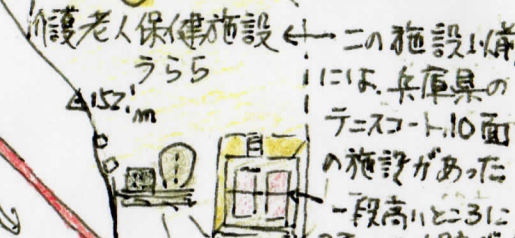 介護老人保健施設
うらら
152m
この施設以前
には、兵庫県の
テニスコート10面
の施設があった
一段高いところに